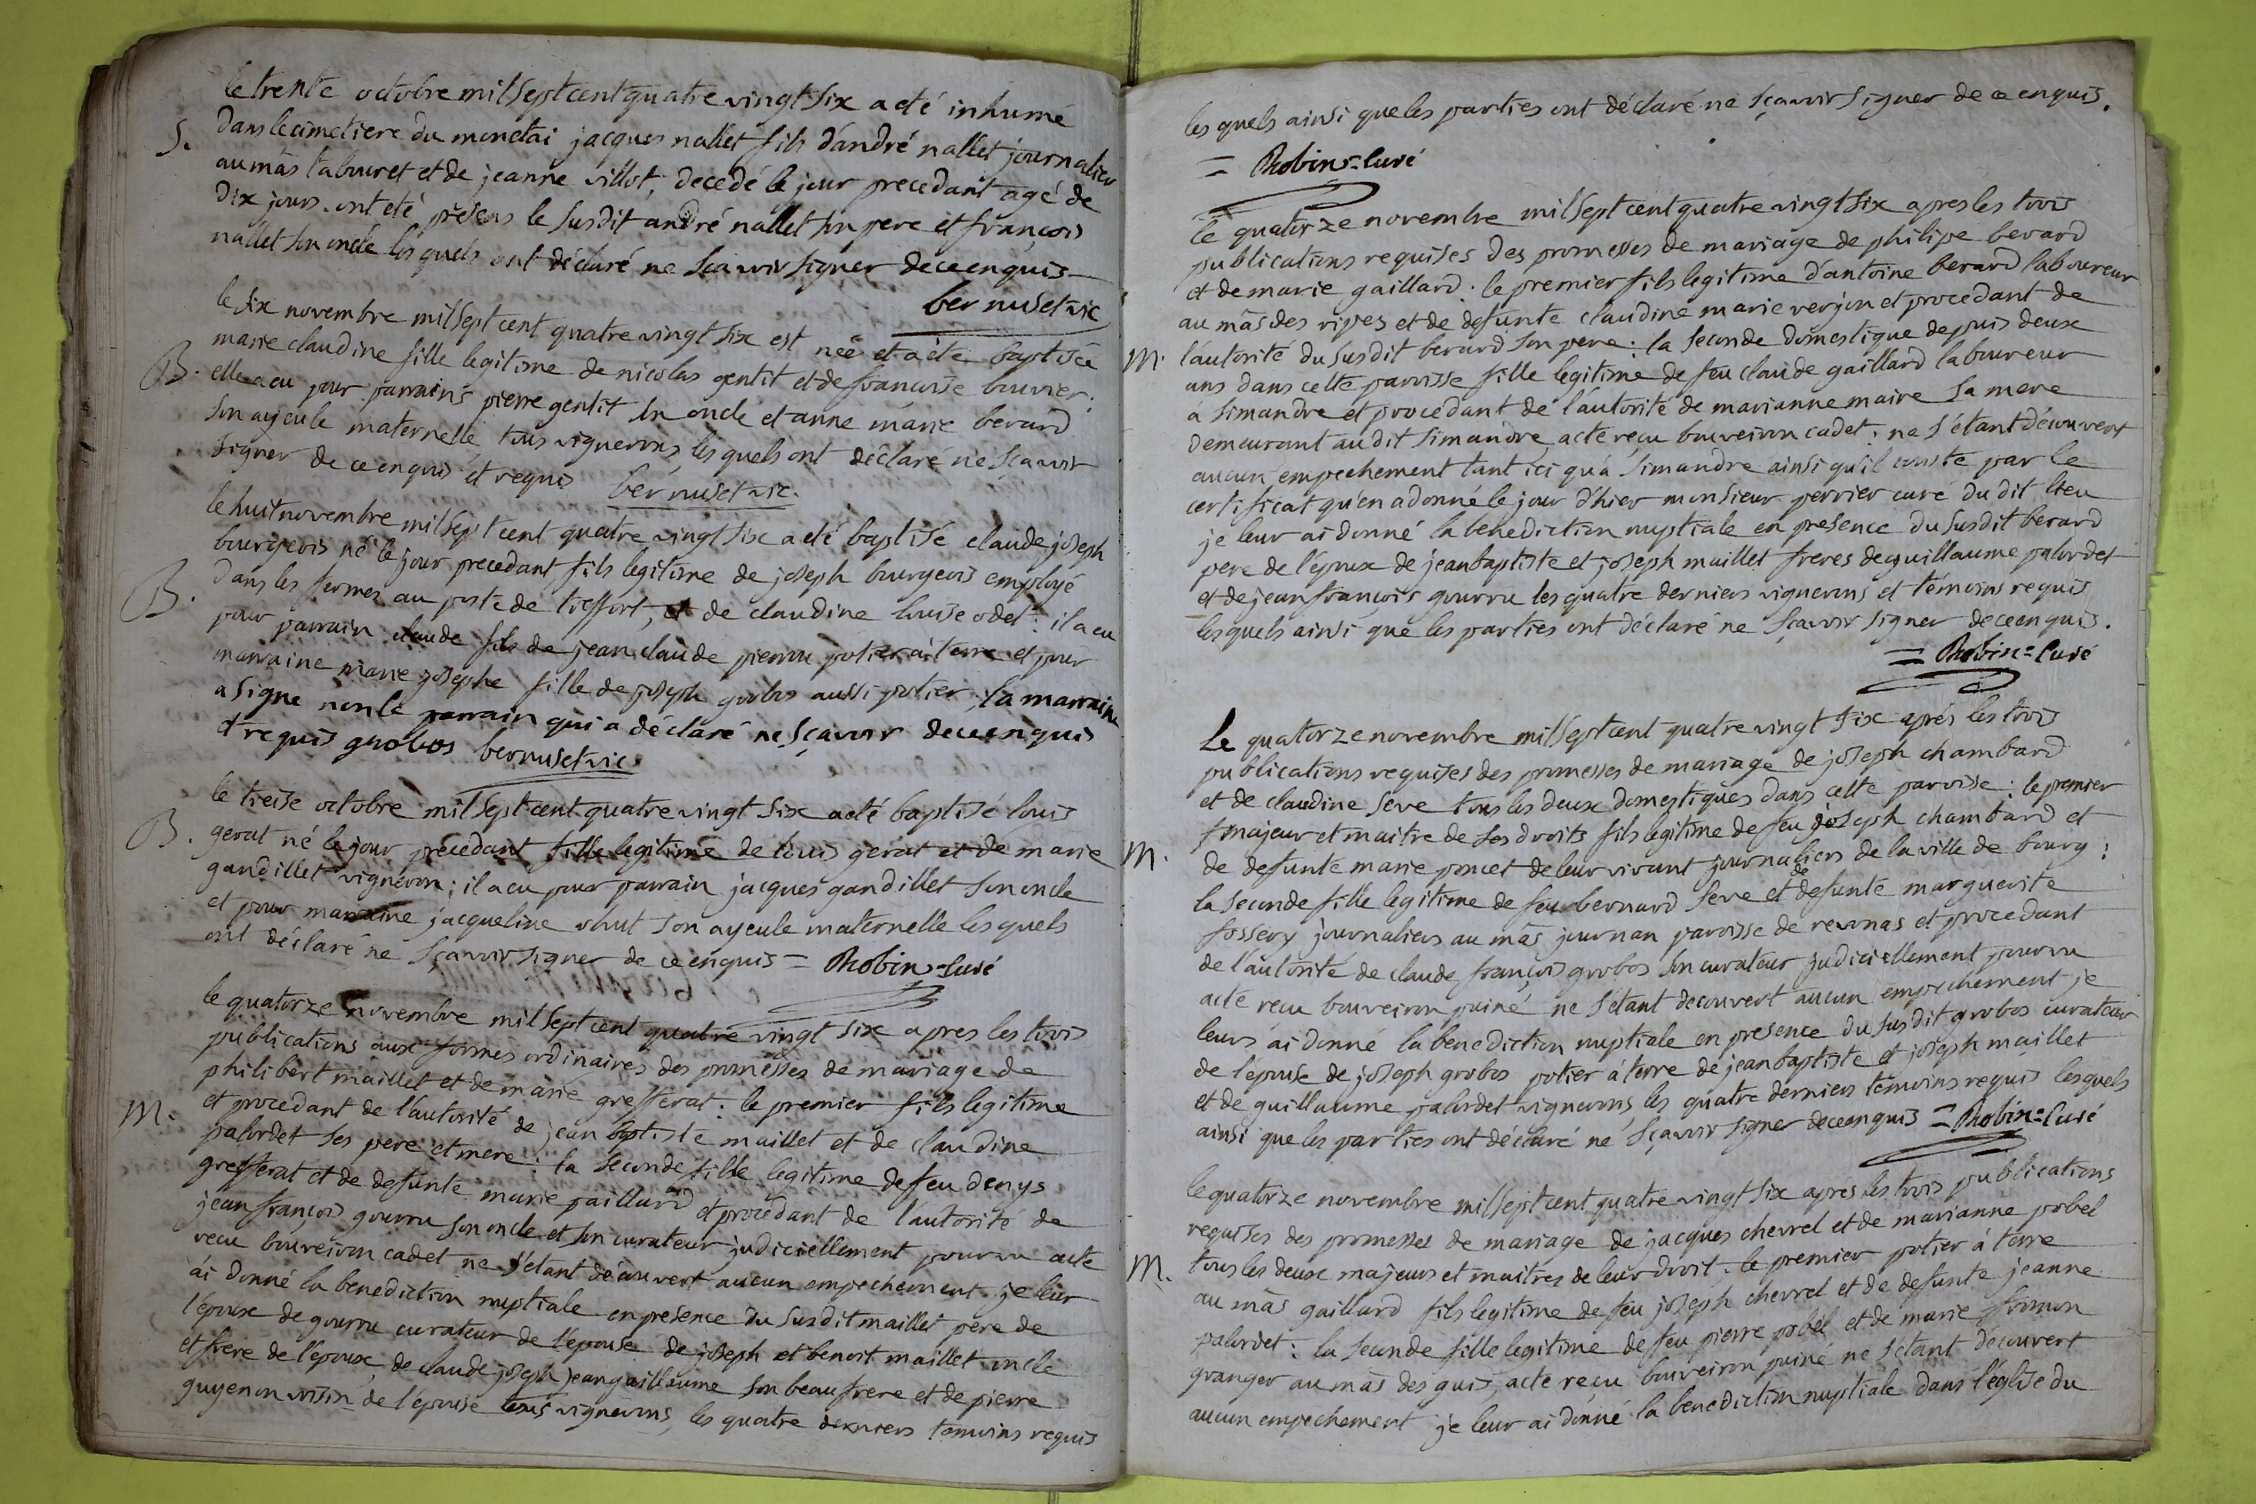 le trente octobre mil sept cent quatre vingt six a eté inhumé
S.
dans le cimetiere du monetai jacques nallet fils d'andré nallet journalier
au mâs tabouret et de jeanne villot, decedé le jour precedant agé de
dix jours. ont eté présens le susdit andré nallet son pere et françois
nallet son oncle lesquels ont déclaré ne sçavoir signer de ce enquis
bernuset vic
le six novembre mil sept cent quatre vingt six est née et a eté baptisée
B.
marie claudine fille legitime de nicolas gentit et de francoise bouvier:
elle a eu pour parrains pierre gentit son oncle et anne marie berard
son ayeule maternelle, tous vignerons, lesquels ont déclaré ne sçavoir
signer de ce enquis et requis bernuset vic.
le huit novembre mil sept cent quatre vingt six a eté baptisé claude joseph
bourgeois né le jour precedant fils legitime de joseph bourgeois employé
B.
dans les fermes au poste de treffort, et de claudine louise odet: il a eu
pour parrain claude fils de jean claude pierru potier à terre et pour
marraine marie josephe fille de joseph grobos aussi potier; la marraine
a signé non le parrain qui a déclaré ne sçavoir de ce enquis
et requis grobos bernuset vic
le treise octobre mil sept cent quatre vingt six a eté baptisé louis
B.
gerat né le jour precedant fille legitime de louis gerat et de marie
gandillet vigneron; il a eu pour parrain jacques gandillet son oncle
et pour marraine jacqueline ohut son ayeule maternelle lesquels
ont déclaré ne sçavoir signer de ce enquis = Robin = Curé
le quatorze novembre mil sept cent quatre vingt six apres les trois
publications aux formes ordinaires des promesses de mariage de
philibert maillet et de marie grefferat: le premier fils legitime
M.
et procedant de l'autorité de jean baptiste maillet et de claudine
palordet ses pere et mere: la seconde fille legitime de feu denys
grefferat et de defunte marie paillard et procedant de l'autorité de
jean françois gourru son oncle et son curateur judiciellement pourvu acte
recu bouveiron cadet ne s'etant découvert aucun empechement je leur
ai donné la benediction nuptiale en presence du susdit maillet pere de
l'epoux de gourru curateur de l'epouse de joseph et benoit maillet oncle
et frere de l'epoux, de claude joseph jeanguillaume son beau frere et de pierre
guyenon voisin de l'epouse tous vignerons, les quatre derniers temoins requis
lesquels ainsi que les parties ont déclaré ne sçavoir signer de ce enquis.
= Robin = Curé
le quatorze novembre mil sept cent quatre vingt six apres les trois
publications requises des promesses de mariage de philipe berard
et de marie gaillard: le premier fils legitime d'antoine berard laboureur
au mâs des rippes et de defunte claudine marie verjon et procedant de
M.
l'autorité du susdit berard son pere: la seconde domestique depuis deux
ans dans cette paroisse fille legitime de feu claude gaillard laboureur
à simandre et procedant de l'autorité de marianne maire sa mere
demeurant au dit simandre, acte reçu bouveiron cadet; ne s'étant découvert
aucun empechement tant ici qu'a simandre ainsi qu'il conste par le
certificat qu'en a donné le jour d'hier monsieur perrier curé du dit lieu
je leur ai donné la benediction nuptiale en presence du susdit berard
pere de l'époux de jean baptiste et joseph maillet freres de guillaume palordet
et de jean françois gourru les quatre derniers vignerons et temoins requis
lesquels ainsi que les parties ont déclaré ne sçavoir signer de ce enquis.
= Robin = Curé
Le quatorze novembre mil sept cent quatre vingt six aprés les trois
publications requises des promesses de mariage de joseph chambard
et de claudine seve tous les deux domestiques dans cette paroisse: le premier
majeur et maitre de ses droits fils legitime de feu joseph chambard et
M.
de defunte marie poncet de leur vivant journaliers de la ville de bourg:
la seconde fille legitime de feu bernard seve et de defunte marguerite
fossery journaliers au mâs journan paroisse de revonas et procedant
de l'autorité de claude françois grobos son curateur judiciellement pourvu
acte recu bouveiron puiné ne s'etant decouvert aucun empechement je
leurs ai donne la benediction nuptiale en presence du susdit grobos curateur
de l'épouse de joseph grobos potier à terre de jean baptiste et joseph maillet
et de guillaume palordet vignerons les quatre derniers temoins requis lesquels
ainsi que les parties ont déclaré ne sçavoir signer de ce enquis = Robin = Curé
le quatorze novembre mil sept cent quatre vingt six apres les trois publications
requises des promesses de mariage de jacques chevrel et de marianne pobel
M.
tous les deux majeurs et maitres de leur droit: le premier potier à terre
au mâs gaillard fils legitime de feu joseph chevrel et de defunte jeanne
palordet: la seconde fille legitime de feu pierre pobel et de marie fromon
granger au mâs des guis, acte recu bouveiron puiné ne s'etant découvert
aucun empechement je leur ai donné la benediction nuptiale dans l'église du